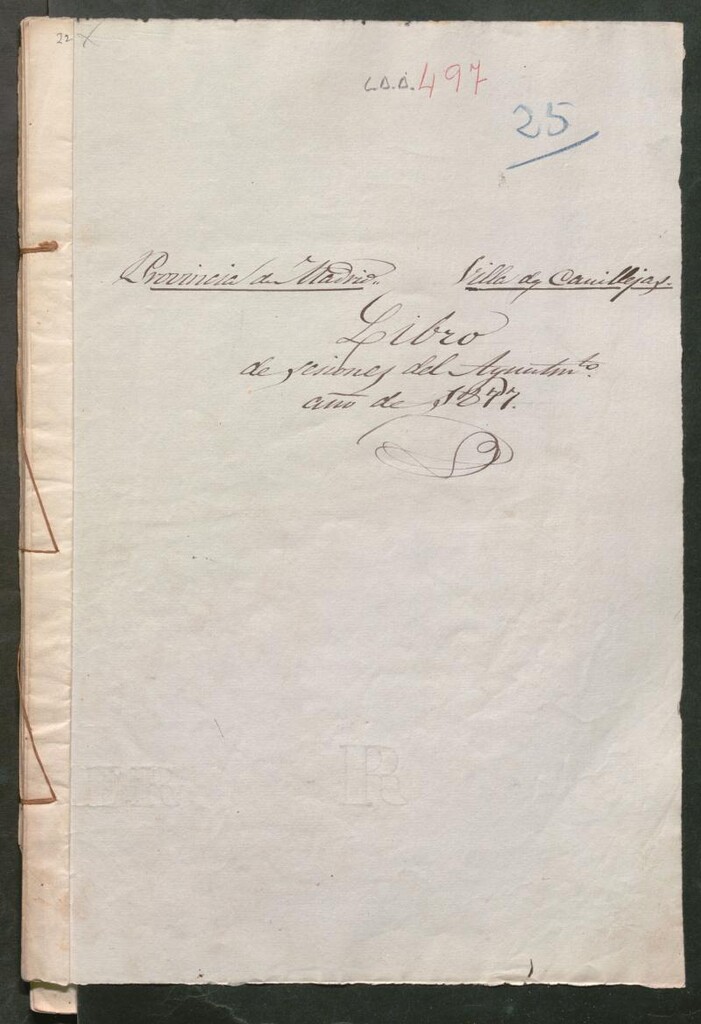 22
L.D.D. 497
25
Provincia de Madrid. Villa de Canillejas.
Libro
de sesiones del Ayuntmto.
año de 1877.
PR